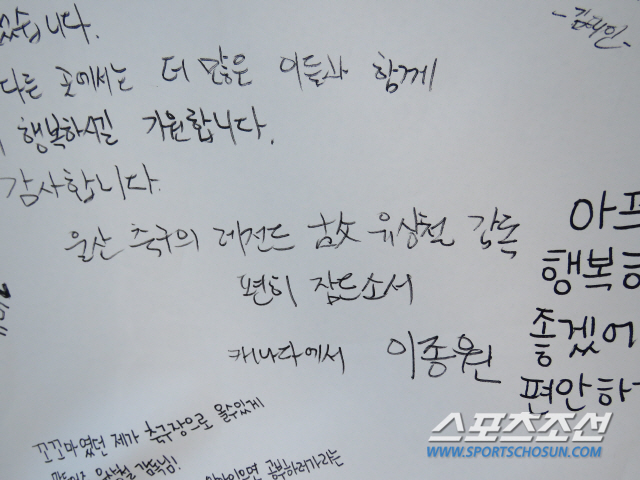 있습니다.
-김태인-
다른 곳에서는 더 많은 이들과 함께
행복하시길 기원합니다.
감사합니다.
울산 축구의 레전드 故 유상철 감독
편히 잠드소서
캐나다에서 이종원
아프
행복하
좋겠어
편안하
꼬꼬마였던 제가 축구장으로 올수있게
감독님!
공부하러가라는
스포츠조선
WWW.SPORTSCHOSUN.COM